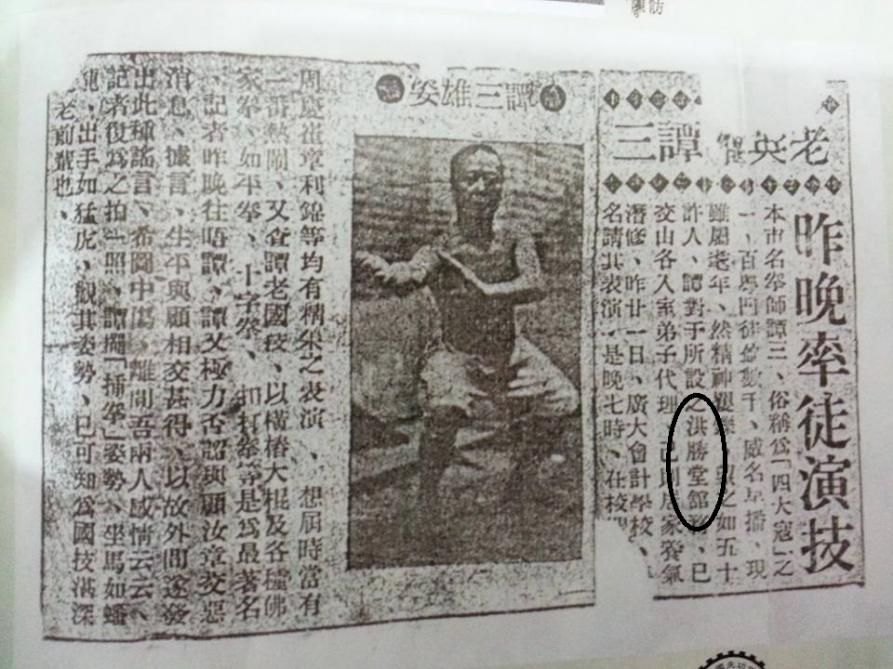 老英雄譚三
昨晚率徒演技
本市名拳師譚三、俗稱爲「四大寇」之
一、百粤門徒逾數千、威名早播、現
雖屆老年、然精神矍鑠、望之如五十
許人、譚對于所設之洪勝堂館務、已
交山各入室弟子代理、己則居家養氣
潛修、昨廿一日、廣大會計學校、
名請其表演、是晚七時、在校
譚三雄姿
周慶崔章利錦等均有精采之表演、想屆時當有
一番熱鬧、又查譚老國技、以橫樁大棍及各種佛
家拳、如平拳、十字拳、扣打拳等是爲最著名
、記者昨晚往晤譚、譚又極力否認與顧汝章交惡
消息、據言、生平與顧相交甚得、以故外間遂發
出此種謠言、希圖中傷、離間吾兩人感情云云、
記者復爲之拍一照、譚開「插拳」姿勢、坐馬如蟠
龍、出手如猛虎、覩其姿勢、已可知爲國技湛深
老前輩也、